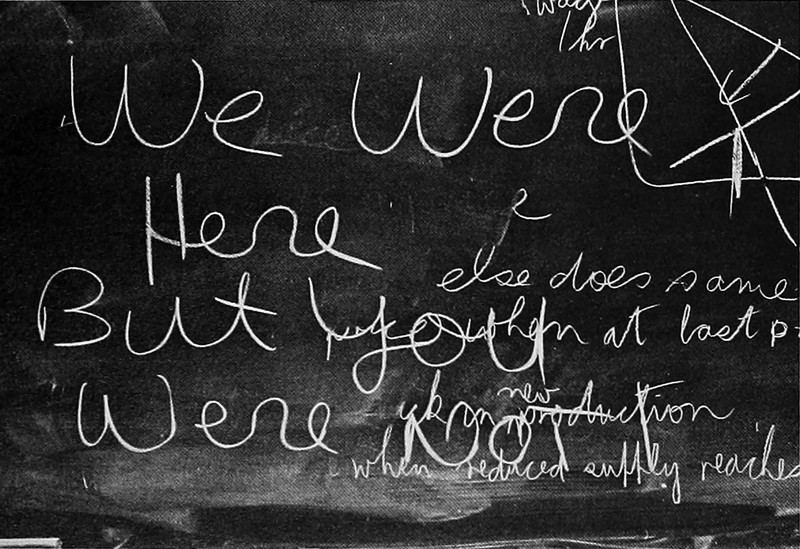 wage
/hr
We Were
Here
But You
Were Not
else does same
when at last
new
production
when reduced supply reaches